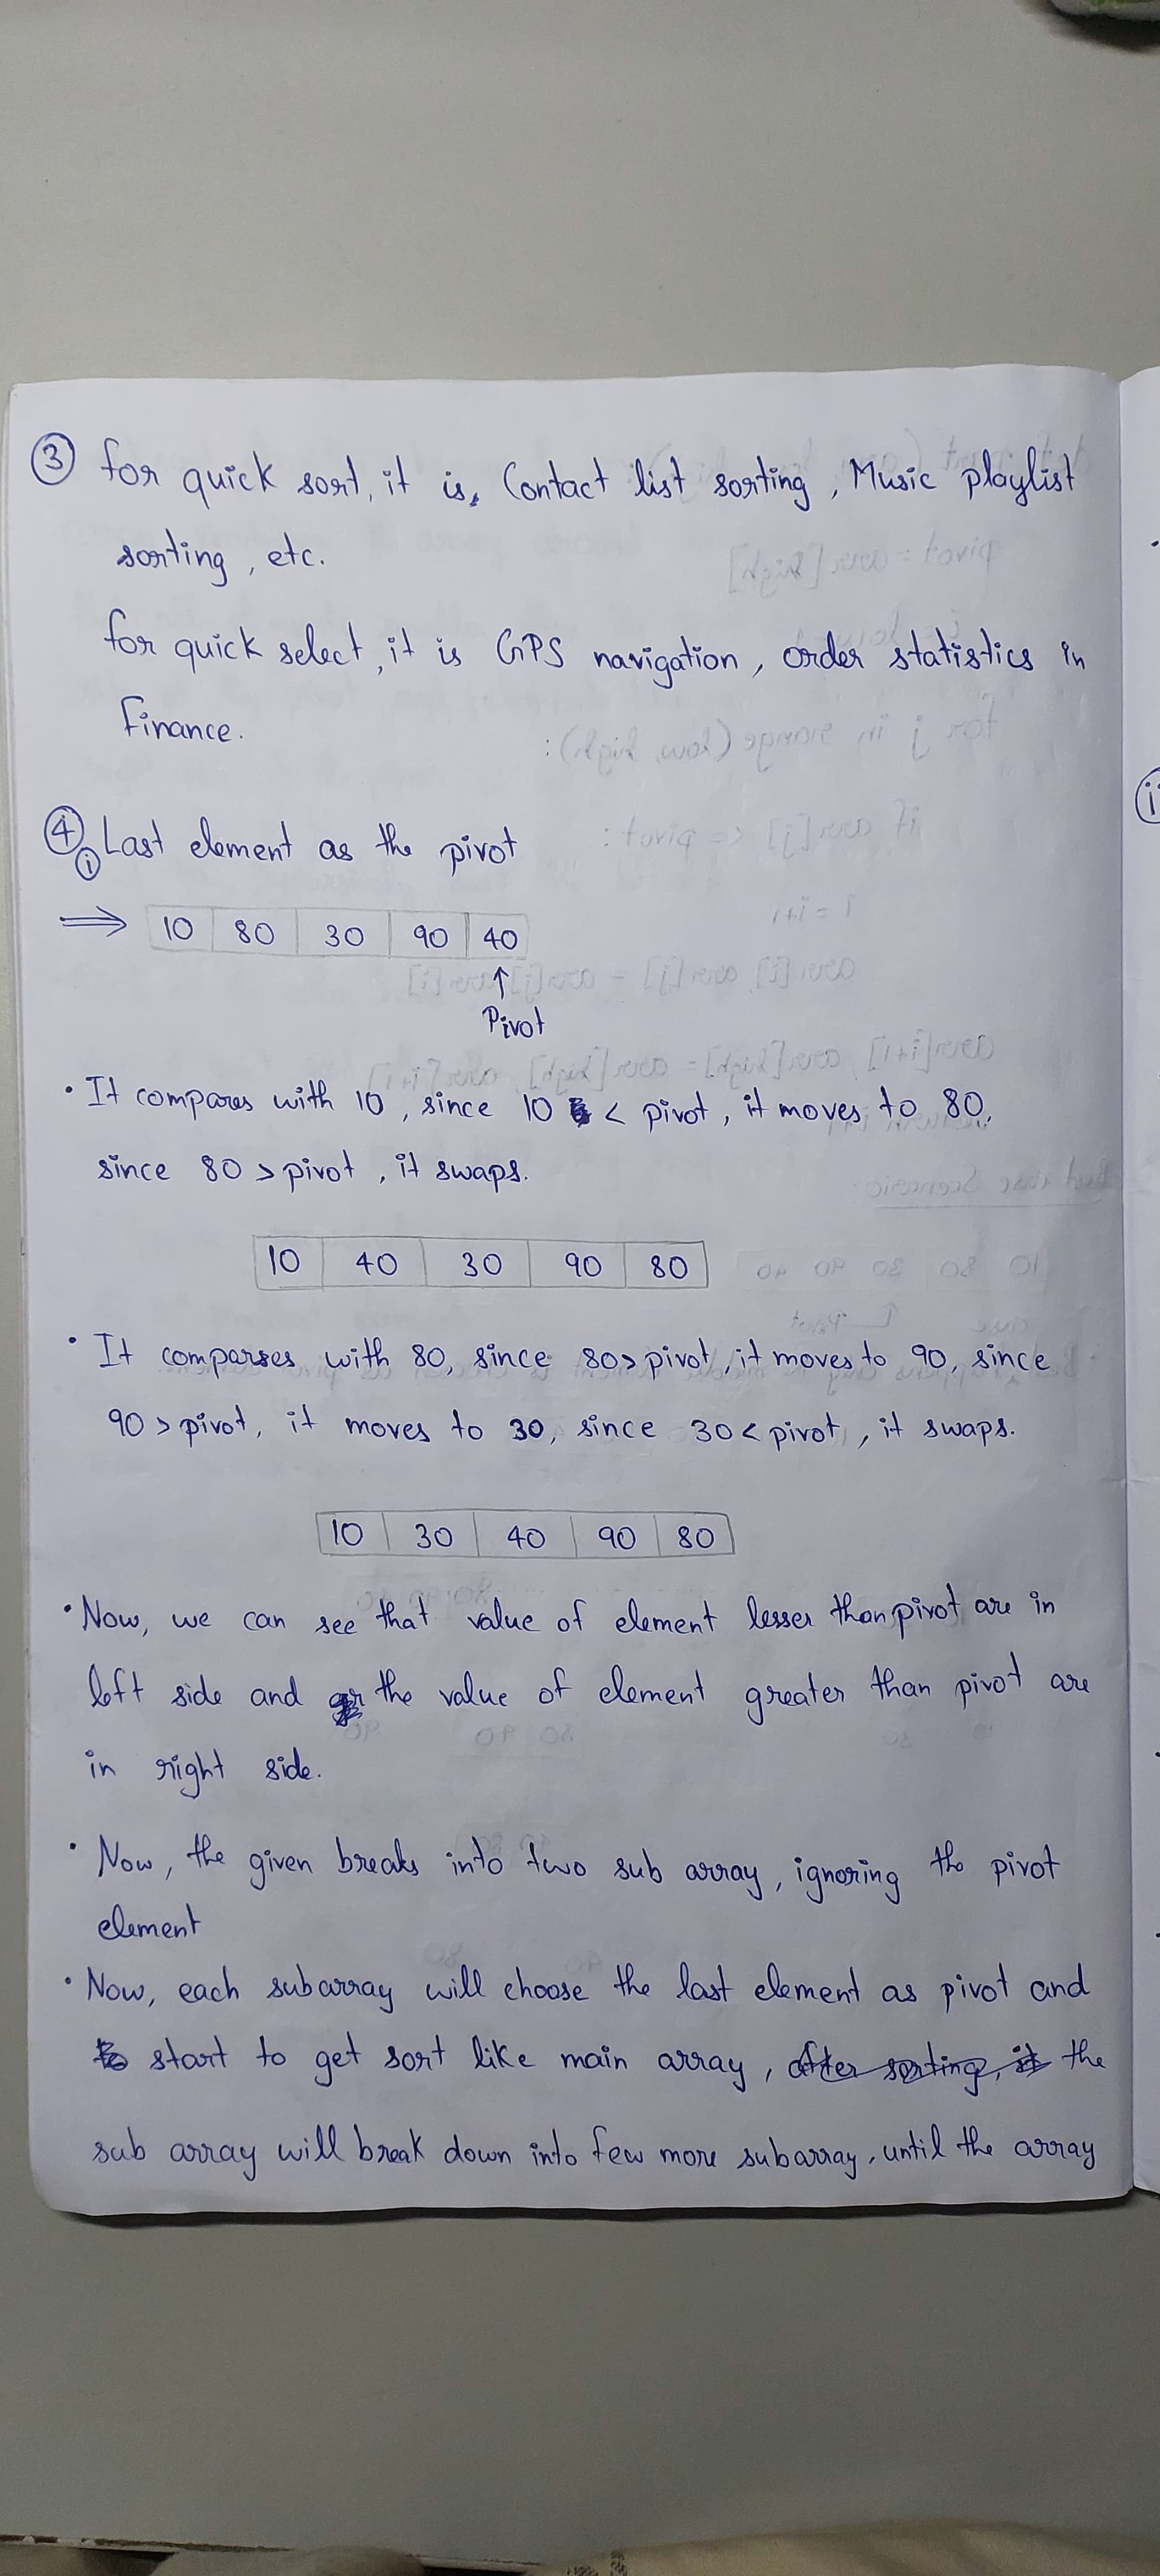 ③ For quick sort, it is, Contact list sorting, Music playlist
sorting, etc.
For quick select, it is GPS navigation, order statistics in
Finance.
④ i Last element as the pivot
⇒ 10 80 30 90 40
↑
Pivot
• It compares with 10, since 10 < pivot, it moves to 80,
since 80 > pivot, it swaps.
10 40 30 90 80
• It compares with 80, since 80 > pivot, it moves to 90, since
90 > pivot, it moves to 30, since 30 < pivot, it swaps.
10 30 40 90 80
• Now, we can see that value of element lesser than pivot are in
left side and the value of element greater than pivot are
in right side.
• Now, the given breaks into two sub array, ignoring the pivot
element
• Now, each subarray will choose the last element as pivot and
start to get sort like main array, after sorting, it the
sub array will break down into few more subarray, until the array